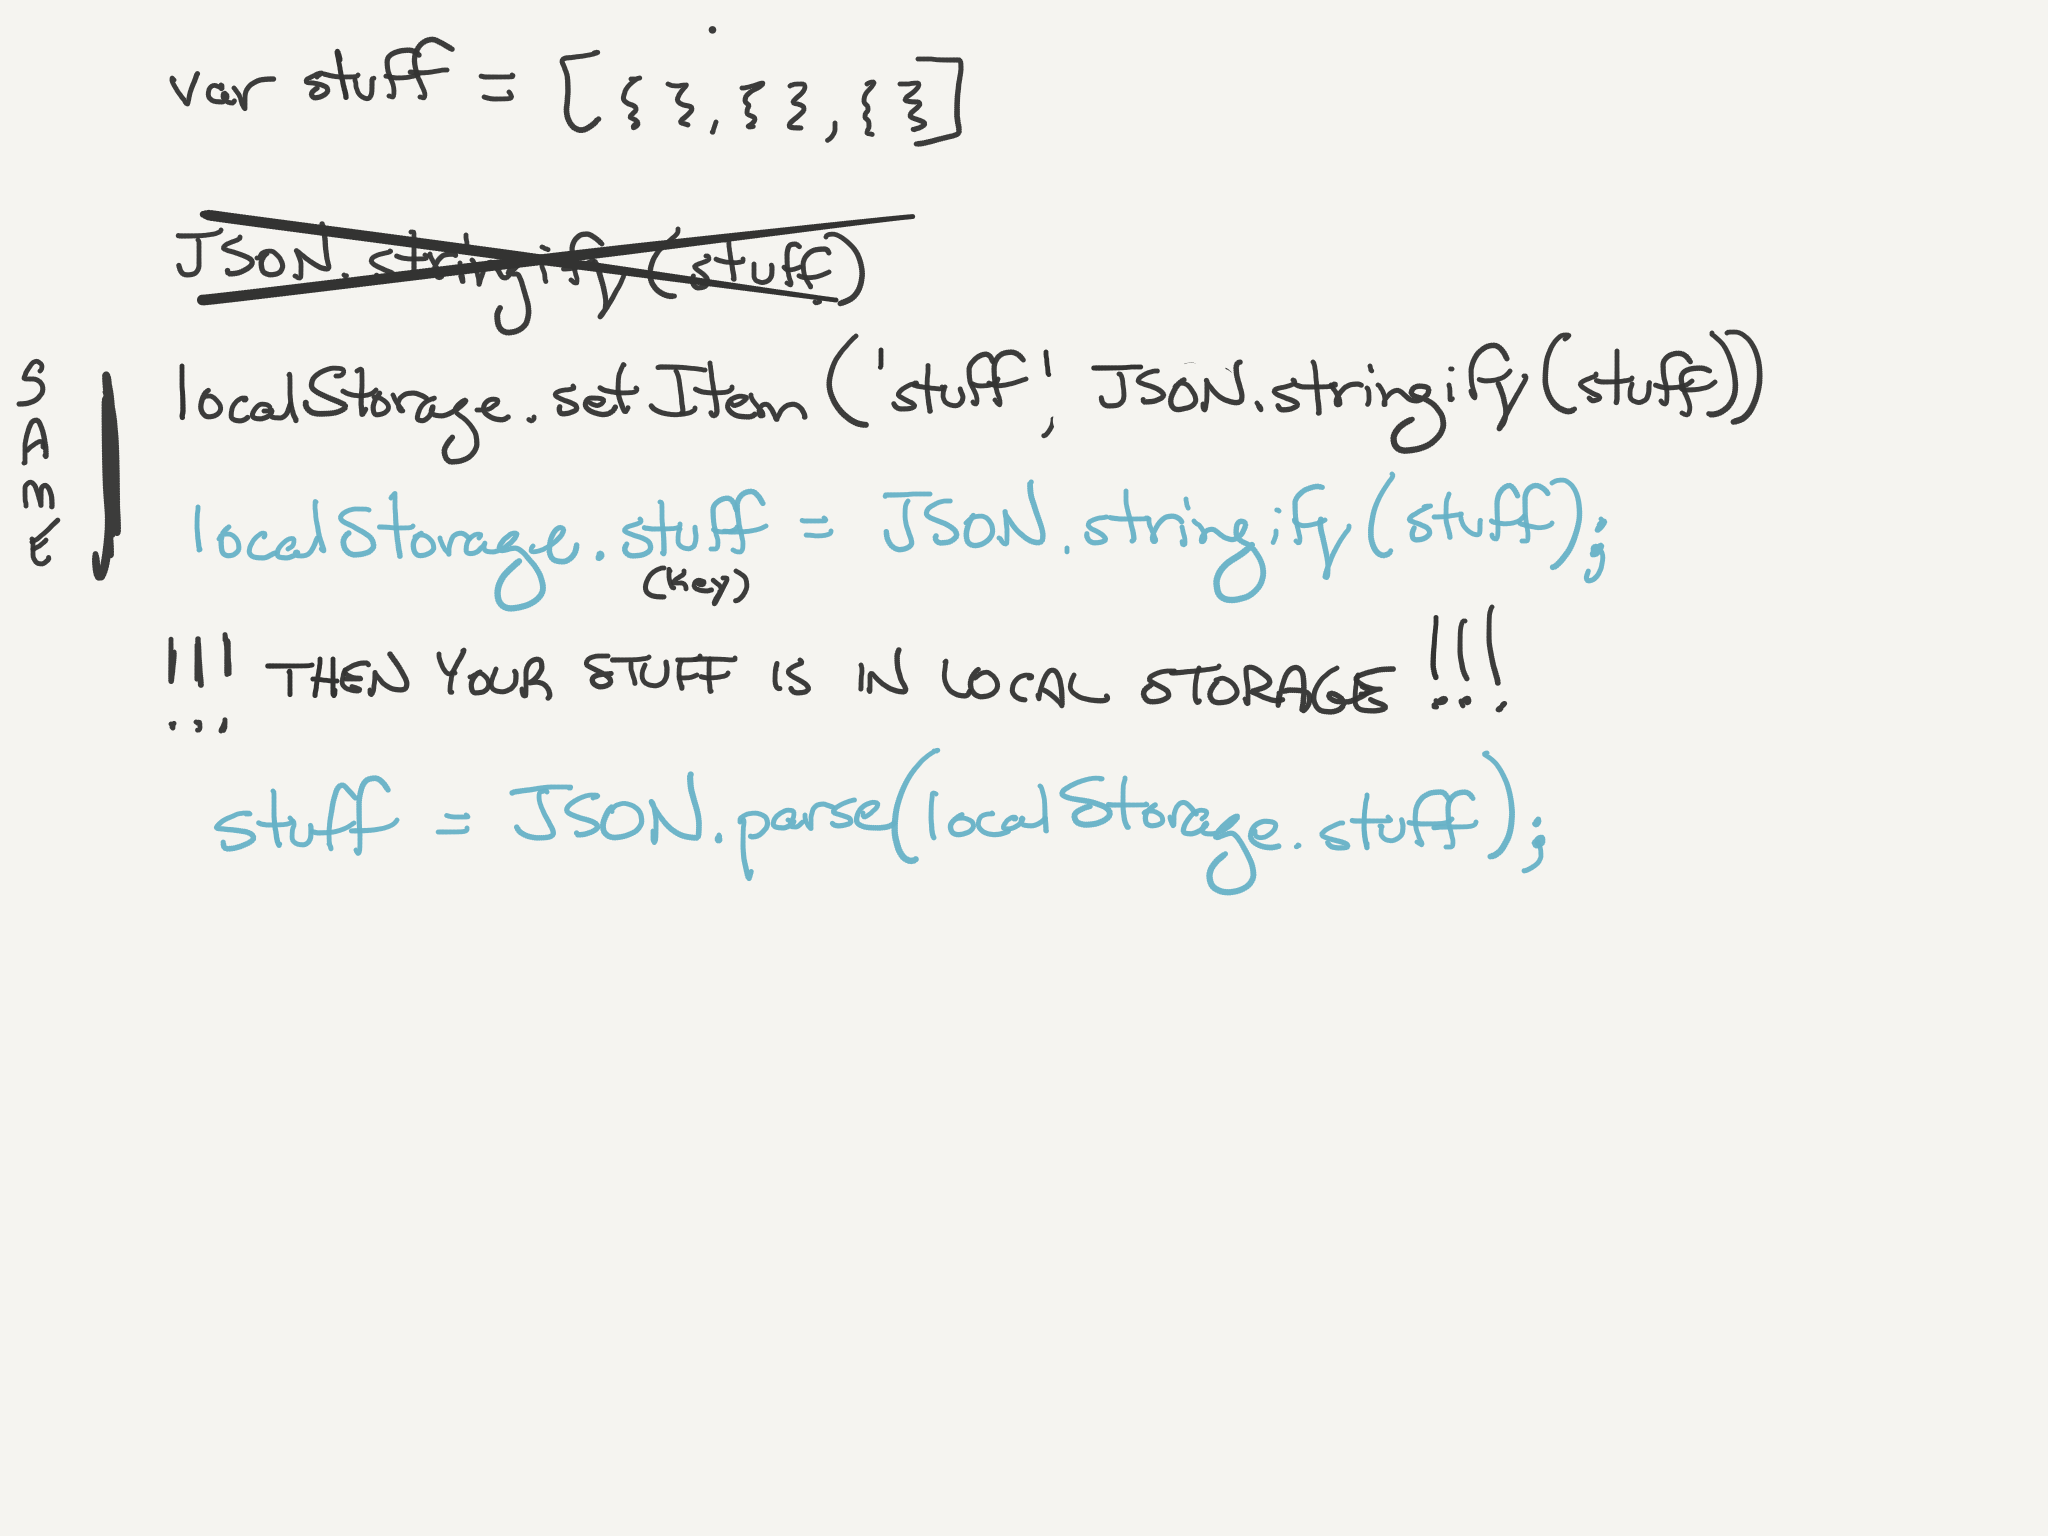 var stuff = [{ }, { }, { }]
JSON.stringify(stuff)
SAME
localStorage.setItem('stuff', JSON.stringify(stuff))
localStorage.stuff = JSON.stringify(stuff);
(key)
!!! THEN YOUR STUFF IS IN LOCAL STORAGE !!!
stuff = JSON.parse(localStorage.stuff);